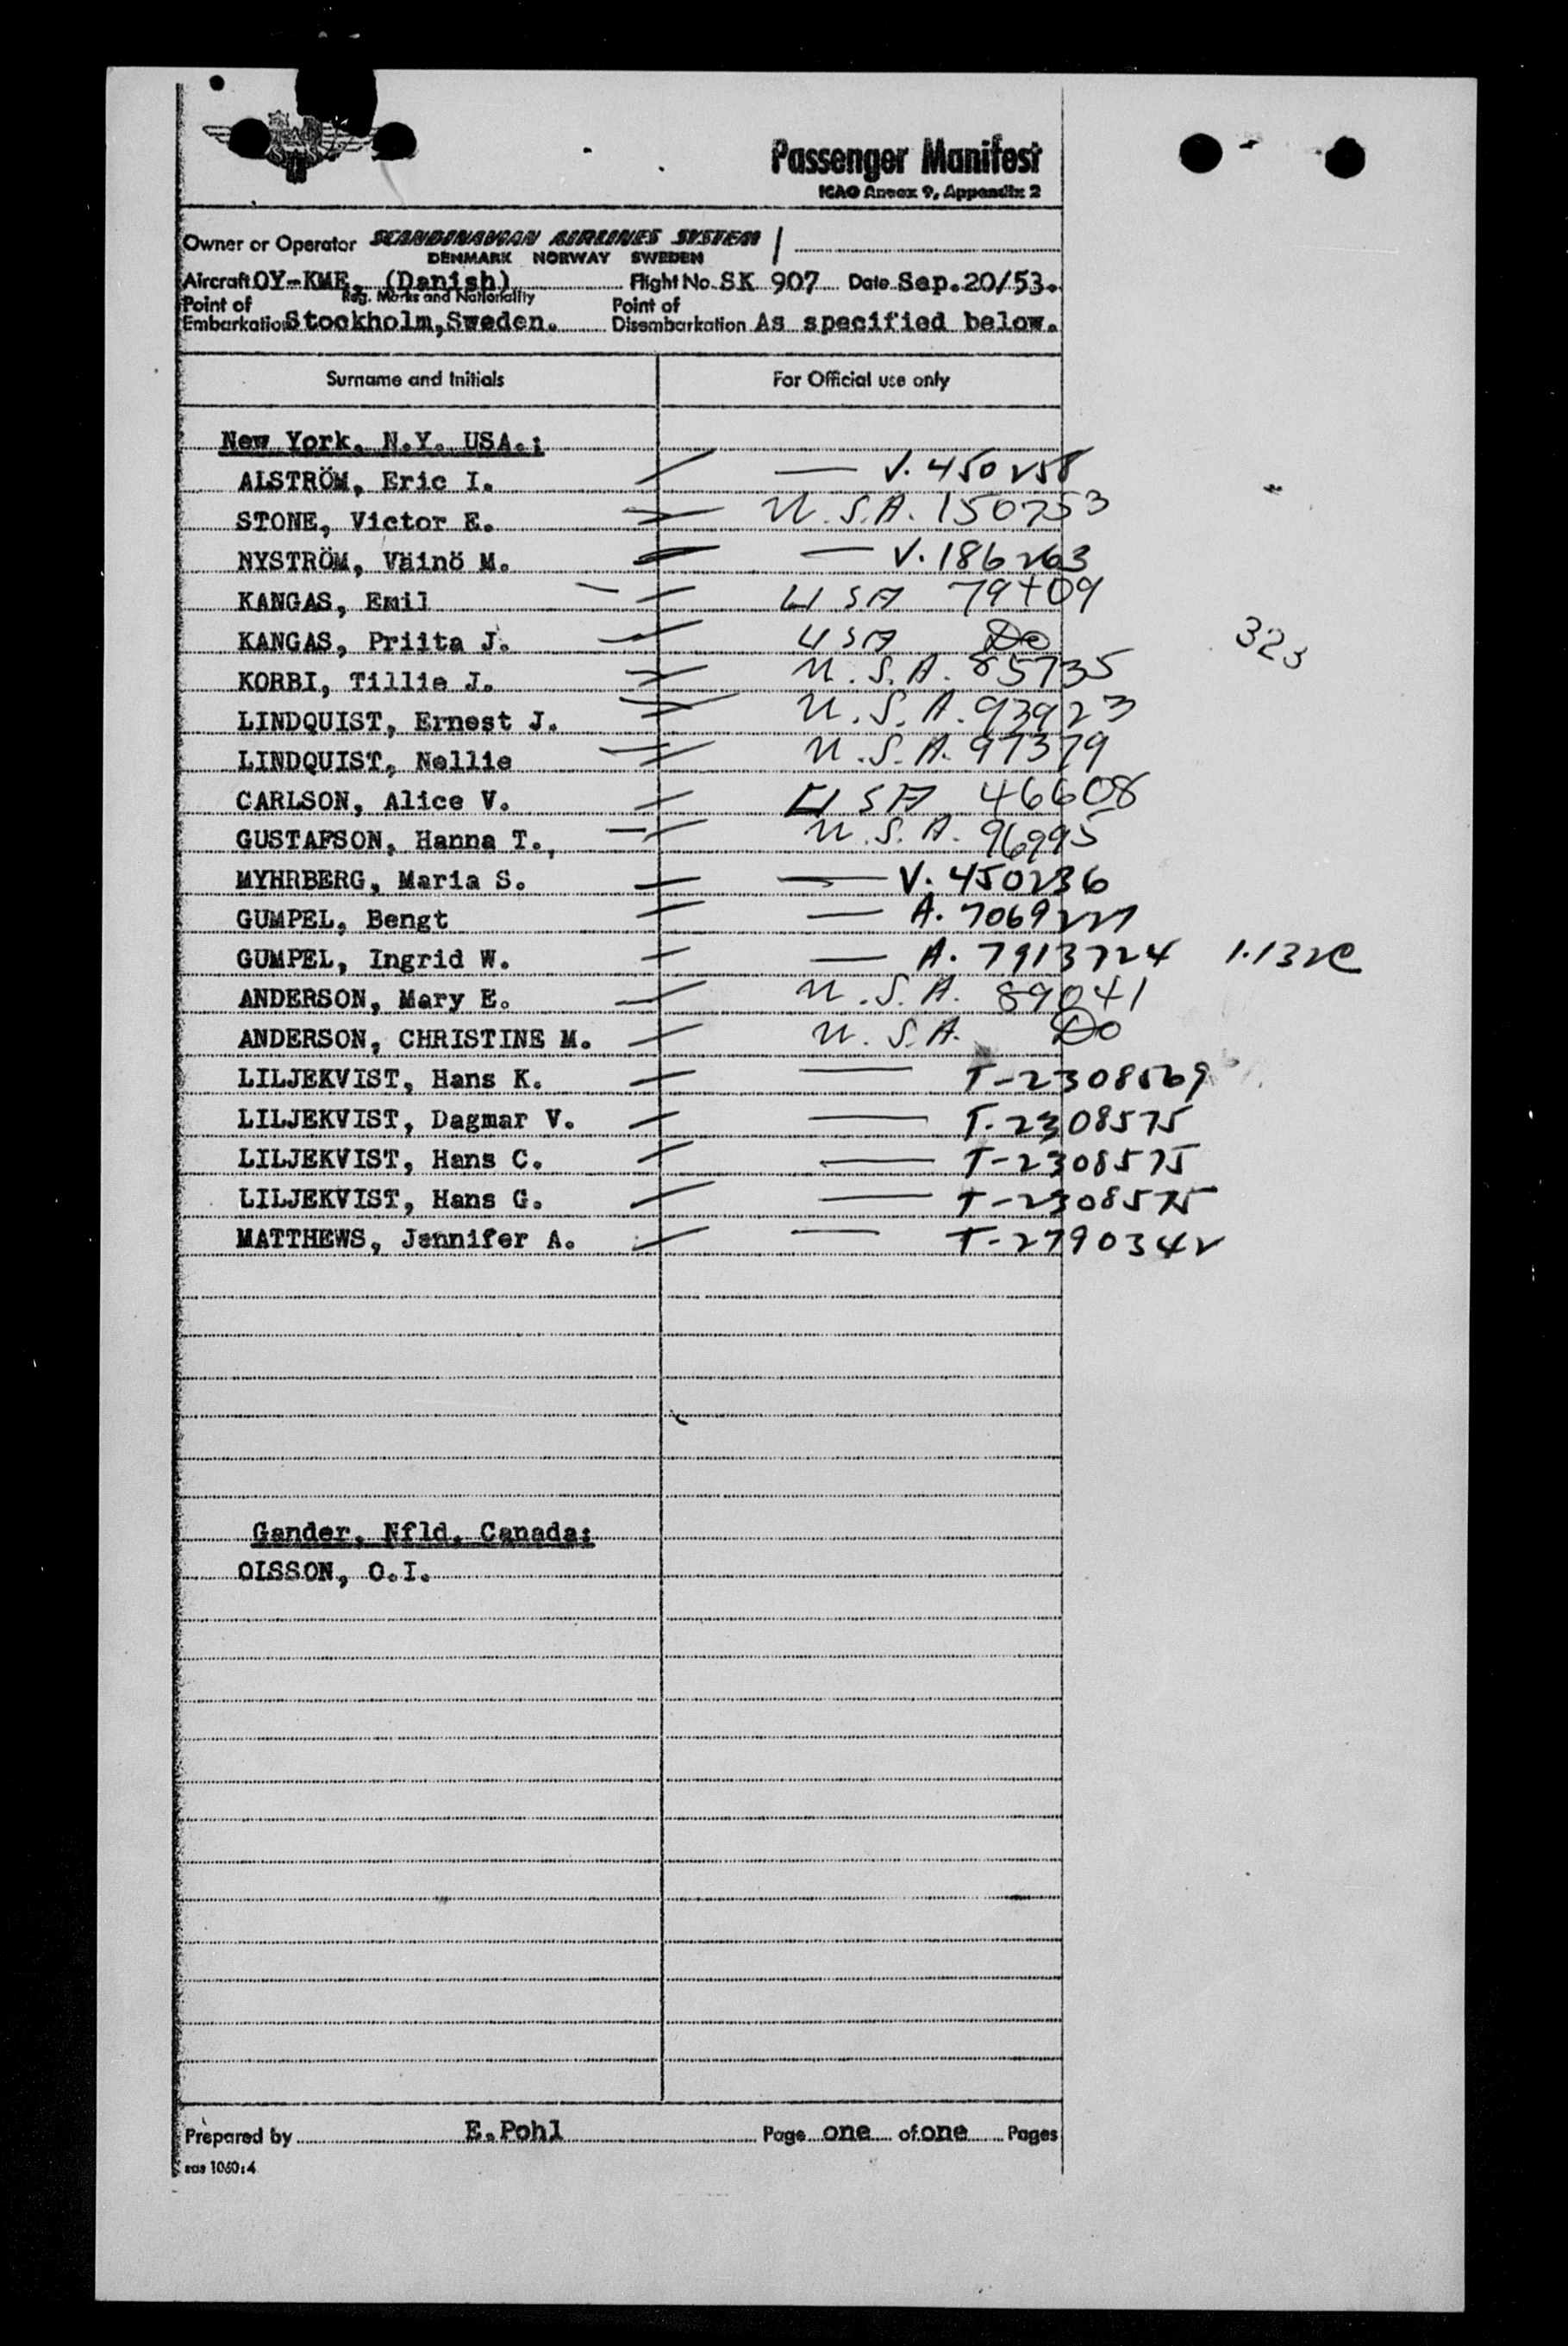 Passenger Manifest
ICAO Annex 9, Appendix 2
Owner or Operator SCANDINAVIAN AIRLINES SYSTEM
DENMARK NORWAY SWEDEN
Aircraft OY-KME, (Danish) Flight No. SK 907 Date Sep.20/53.
Reg. Marks and Nationality
Point of Embarkation Stockholm, Sweden. Point of Disembarkation As specified below.
Surname and Initials For Official use only
New York, N.Y. USA.:
ALSTRÖM, Eric I. — V. 450258
STONE, Victor E. U.S.A. 150753
NYSTRÖM, Väinö M. — V. 186263
KANGAS, Emil USA 79409
KANGAS, Priita J. USA Do
323
KORBI, Tillie J. U.S.A. 85735
LINDQUIST, Ernest J. U.S.A. 93923
LINDQUIST, Nellie U.S.A. 97379
CARLSON, Alice V. USA 46608
GUSTAFSON, Hanna T., U.S.A. 96995
MYHRBERG, Maria S. — V. 450236
GUMPEL, Bengt — A.
GUMPEL, Ingrid W. — A. 7913724
ANDERSON, Mary E. U.S.A. 89041
ANDERSON, CHRISTINE M. U.S.A. Do
LILJEKVIST, Hans K. — T-2308569
LILJEKVIST, Dagmar V. — T-2308575
LILJEKVIST, Hans C. — T-2308575
LILJEKVIST, Hans G. — T-2308575
MATTHEWS, Jennifer A. — T-2790342
Gander, Nfld. Canada:
OLSSON, O.I.
Prepared by E.Pohl Page one of one Pages
sas 1060:4